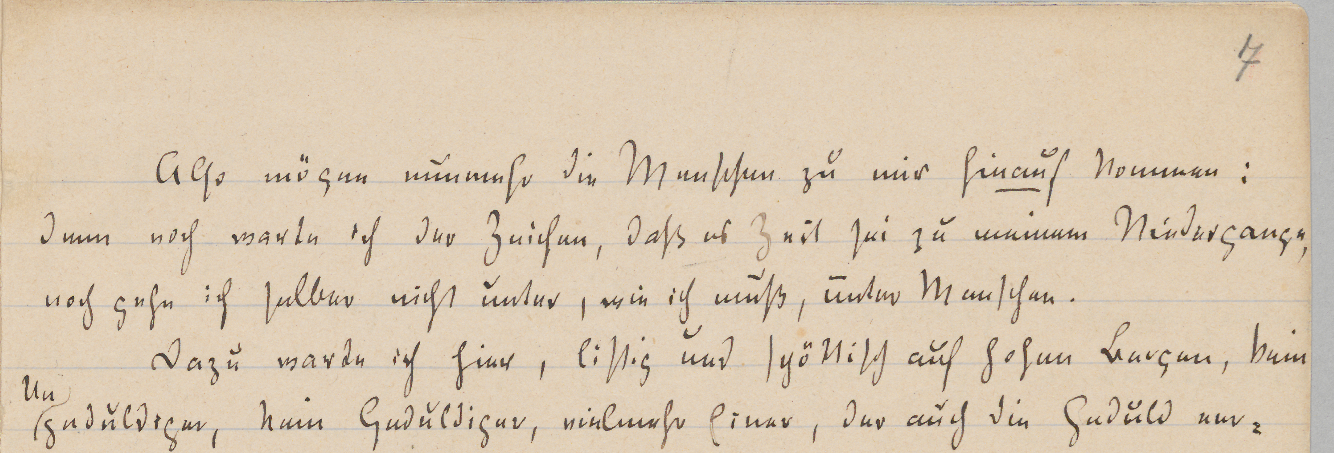 7
Also mögen nunmehr die Menschen zu mir hinauf kommen:
denn noch warte ich der Zeichen, daß es Zeit sei zu meinem Niedergange,
noch gehe ich selber nicht unter, wie ich muß, unter Menschen.
Dazu warte ich hier, listig und spöttisch auf hohen Bergen, kein
Ungeduldiger, kein Geduldiger, vielmehr Einer, der auch die Geduld ver=